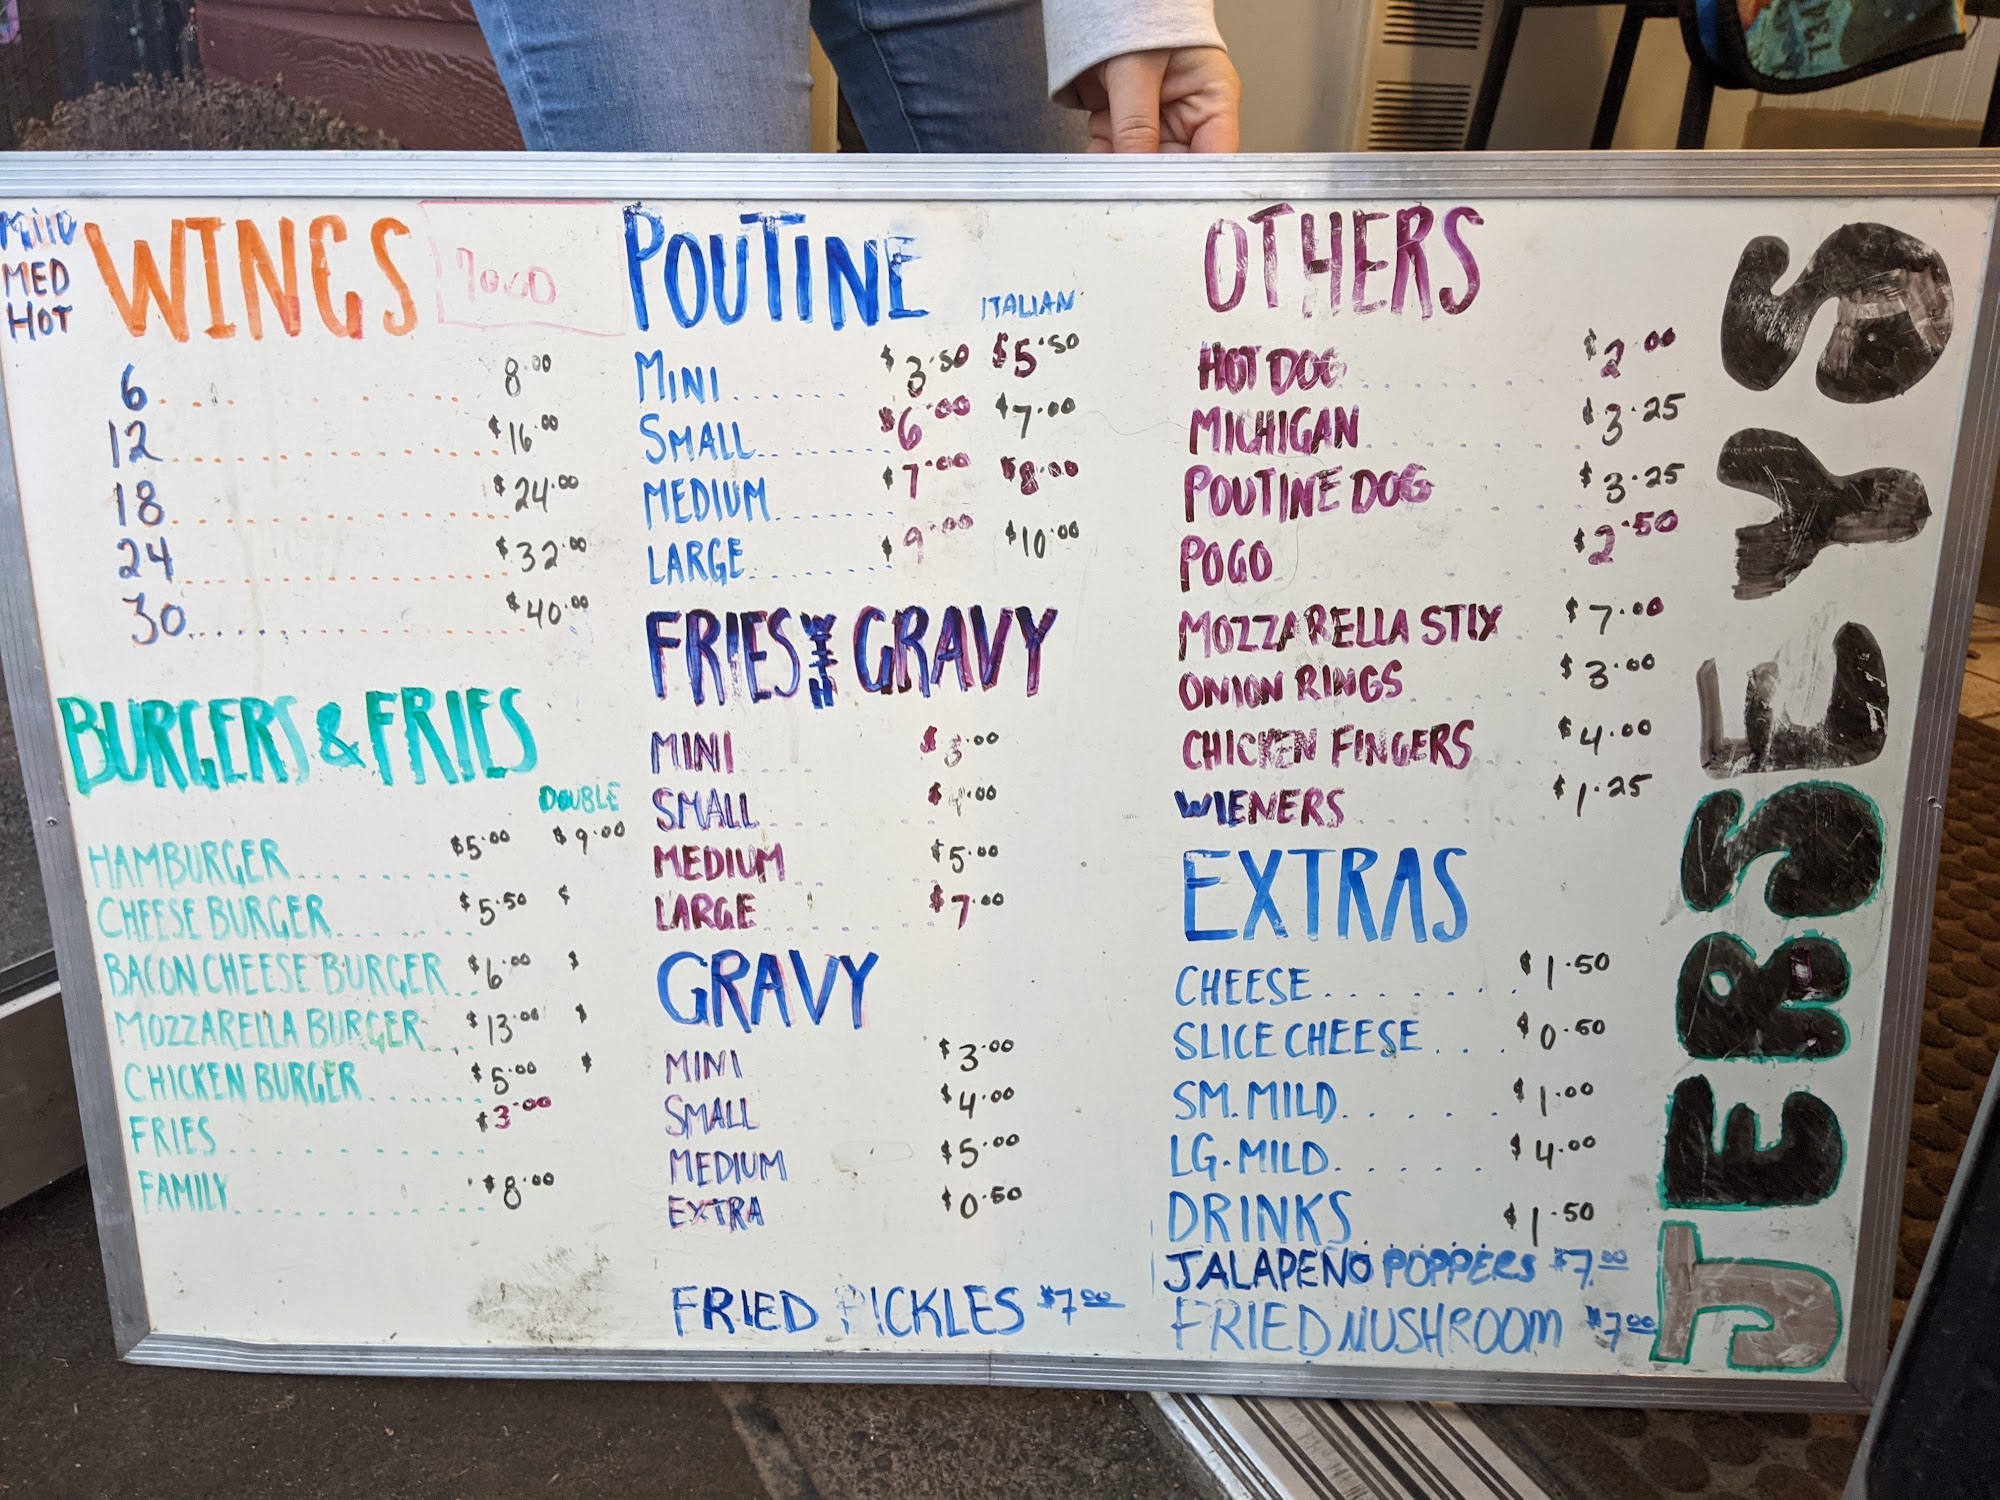 MILD
MED
HOT
WINGS
6 8.00
12 $16.00
18 $24.00
24 $32.00
30 $40.00
BURGERS & FRIES
DOUBLE
HAMBURGER $5.00 $9.00
CHEESE BURGER $5.50 $
BACON CHEESE BURGER $6.00 $
MOZZARELLA BURGER $13.00 $
CHICKEN BURGER $5.00 $
FRIES $3.00
FAMILY $8.00
POUTINE
ITALIAN
MINI $3.50 $5.50
SMALL $6.00 $7.00
MEDIUM $7.00 $8.00
LARGE $9.00 $10.00
FRIES WITH GRAVY
MINI $3.00
SMALL $4.00
MEDIUM $5.00
LARGE $7.00
GRAVY
MINI $3.00
SMALL $4.00
MEDIUM $5.00
EXTRA $0.50
FRIED PICKLES $7.00
OTHERS
HOT DOG $2.00
MICHIGAN $3.25
POUTINE DOG $3.25
POGO $2.50
MOZZARELLA STIX $7.00
ONION RINGS $3.00
CHICKEN FINGERS $4.00
WIENERS $1.25
EXTRAS
CHEESE $1.50
SLICE CHEESE $0.50
SM. MILD $1.00
LG. MILD $4.00
DRINKS $1.50
JALAPEÑO POPPERS $7.00
FRIED MUSHROOM $7.00
JERSEYS